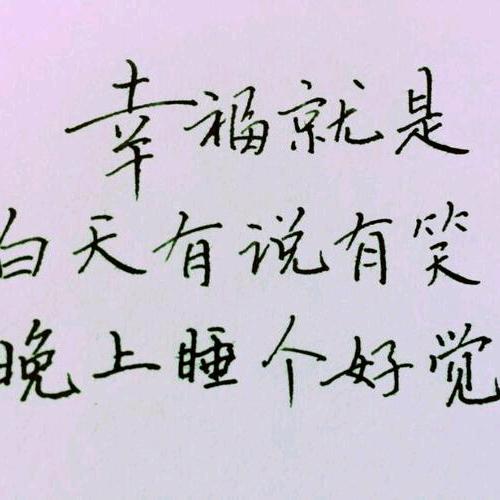 幸福就是
白天有说有笑
晚上睡个好觉